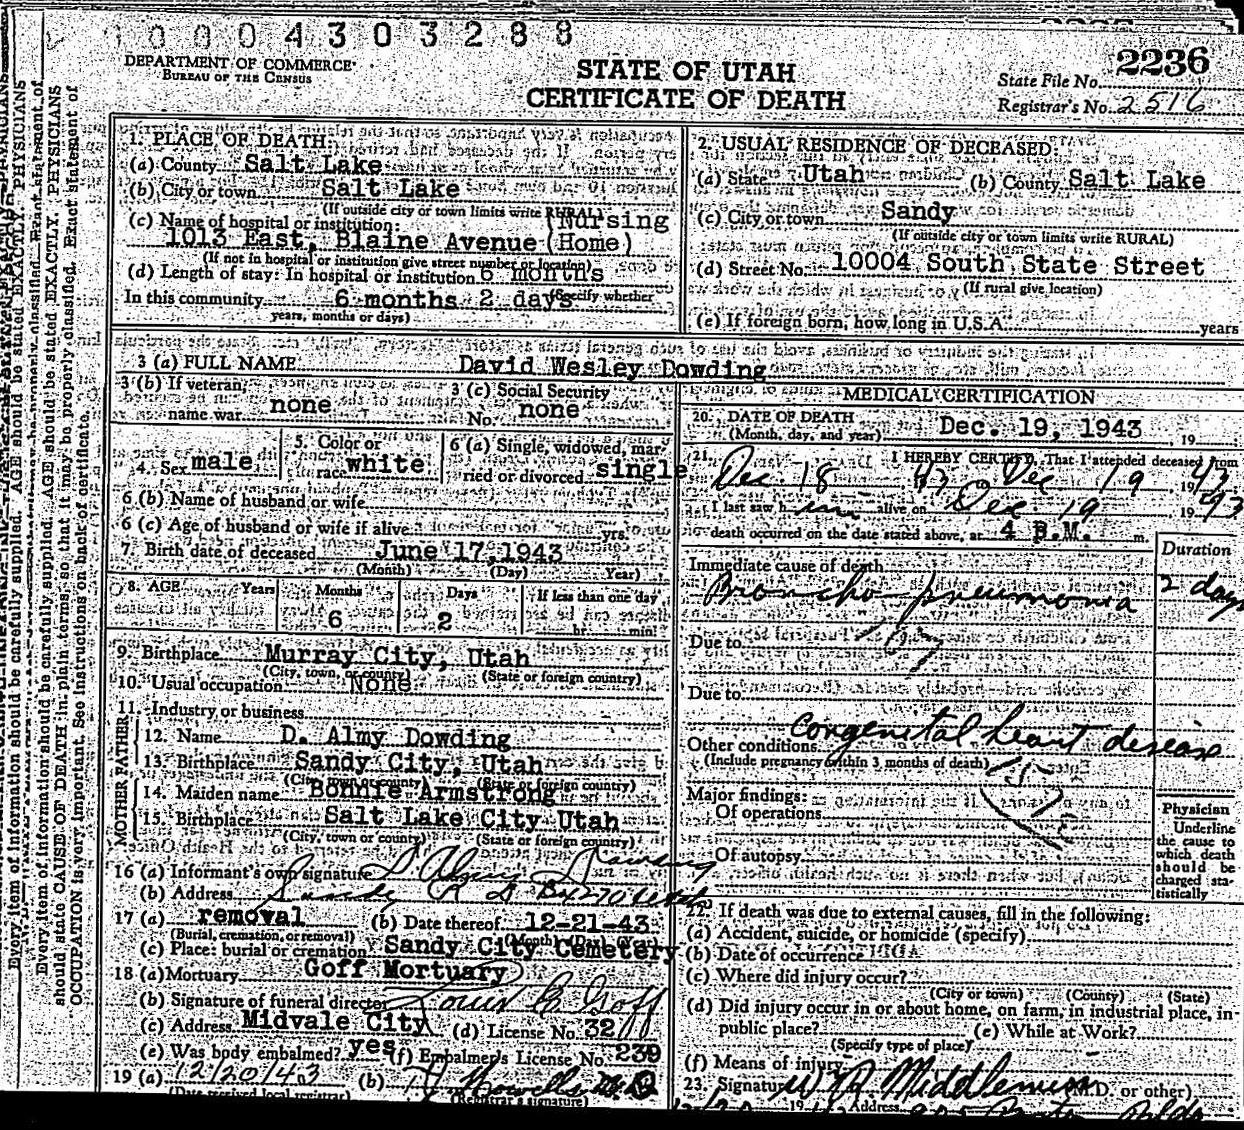 0 0 0 4 3 0 3 2 8 8
DEPARTMENT OF COMMERCE
BUREAU OF THE CENSUS
STATE OF UTAH
CERTIFICATE OF DEATH
State File No. 2236
Registrar's No. 2516
1. PLACE OF DEATH:
(a) County Salt Lake
(b) City or town Salt Lake
(If outside city or town limits write RURAL)
(c) Name of hospital or institution: (Nursing
1013 East, Blaine Avenue (Home)
(If not in hospital or institution give street number or location)
(d) Length of stay: In hospital or institution 6 months
In this community 6 months 2 days (Specify whether
years, months or days)
2. USUAL RESIDENCE OF DECEASED
(a) State Utah (b) County Salt Lake
(c) City or town Sandy
(If outside city or town limits write RURAL)
(d) Street No. 10004 South State Street
(If rural give location)
(e) If foreign born, how long in U.S.A. years
3 (a) FULL NAME David Wesley Dowding
3 (b) If veteran, name war none
3 (c) Social Security No. none
4. Sex male
5. Color or race white
6 (a) Single, widowed, married or divorced single
6 (b) Name of husband or wife
6 (c) Age of husband or wife if alive yrs.
7. Birth date of deceased June 17, 1943
(Month) (Day) Year)
8. AGE Years Months Days If less than one day
6 2 hr. min.
9. Birthplace Murray City, Utah
(City, town, or county) (State or foreign country)
10. Usual occupation None
11. Industry or business
FATHER
12. Name D. Almy Dowding
13. Birthplace Sandy City, Utah
(City, town or county) (State or foreign country)
MOTHER
14. Maiden name Bonnie Armstrong
15. Birthplace Salt Lake City Utah
(City, town or county) (State or foreign country)
16 (a) Informant's own signature D. Almy Dowding
(b) Address Sandy R D Bx 270 Utah
17 (a) removal (b) Date thereof 12-21-43
(Burial, cremation, or removal) (Month) (Day) (Year)
(c) Place: burial or cremation Sandy City Cemetery
18 (a) Mortuary Goff Mortuary
(b) Signature of funeral director Louis E Goff
(c) Address Midvale City (d) License No. 32
(e) Was body embalmed? yes (f) Embalmer's License No. 239
19 (a) 12/20/43 (b)
(Date received local registrar) (Registrar's signature)
MEDICAL CERTIFICATION
20. DATE OF DEATH
(Month, day, and year) Dec. 19, 1943 19
21. I HEREBY CERTIFY, That I attended deceased from
Dec. 18 43 Dec 19 1943
I last saw him alive on Dec. 19 1943
death occurred on the date stated above, at 4 P.M. m.
Duration
Immediate cause of death
Broncho pneumonia 2 days
Due to
Due to
congenital heart disease
Other conditions
(Include pregnancy within 3 months of death)
Major findings:
Of operations
Of autopsy
Physician
Underline
the cause to
which death
should be
charged sta-
tistically
22. If death was due to external causes, fill in the following:
(a) Accident, suicide, or homicide (specify)
(b) Date of occurrence
(c) Where did injury occur?
(City or town) (County) (State)
(d) Did injury occur in or about home, on farm, in industrial place, in-
public place? (e) While at Work?
(Specify type of place)
(f) Means of injury
23. Signature Middlemiss (M.D. or other)
Address
Every item of information should be carefully supplied. AGE should be stated EXACTLY. PHYSICIANS
should state CAUSE OF DEATH in plain terms, so that it may be properly classified. Exact statement of
OCCUPATION is very important. See instructions on back of certificate.